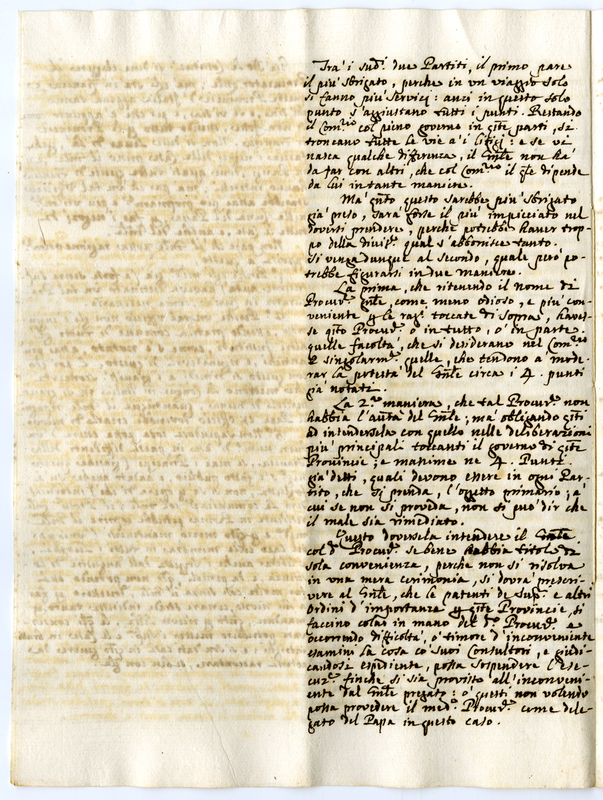 Trà i sud.i due Partiti, il primo pare
il più sbrigato, perche in un viaggio solo
si fanno più servicj: anzi in questo solo
punto s'aggiustano tutti i punti. Restando
il Com.rio col pieno governo in q̃te parti, si
troncano tutte le vie a i litigj: e se vi
nasca qualche differenza, il Gñle non hà
da far con altri, che col Com.rio il q̃le dipende
da lui in tante maniere.
Mà q̃nto questo sarebbe più sbrigato
già preso, sarà forse il più impicciato nel
doversi prendere, perche potrebbe haver trop-
po della divis.e qual s'abborrisce tanto.
Si venga dunque al secondo, quale però po-
trebbe figurarsi in due maniere.
La prima, che ritenendo il nome di
Procur.e Gñle, come meno odioso, e più con-
veniente p̱ le rag.i toccate di sopra, haves-
se q̃sto Procur.e ò in tutto, ò in parte
quelle facoltà, che si desiderano nel Com.rio
e singolarm.te quelle, che tendono a mode-
rar la potestà del Gñle circa i 4. punti
già notati.
La 2.a maniera, che tal Procur.e non
habbia l'autà del Gñle; mà obligando q̃sti
ad intendersela con quello nelle deliberazioni
più principali toccanti il governo di q̃ste
Provincie; e massime ne 4. Punti
già detti, quali devono essere in ogni Par-
tito, che si prenda, l'oggetto primario; a
cui se non si proveda, non si può dir che
il male sia rimediato.
Questo doversela intendere il Gñle
col d.o Procur.e se bene habbia titolo di
sola convenienza, perche non si risolva
in una mera cerimonia, si dovrà prescri-
vere al Gñle, che le patenti de Sup.i e altri
Ordini d'importanza p̱ q̃ste Provincie, si
faccino colar in mano del d.o Procur.e e
occorrendo difficoltà, ò timore d'inconveniente
esamini la cosa co suoi Consultori, e giudi-
candosi espediente, possa sospendere l'ese-
cuz.e finche si sia provisto all'inconveni-
ente dal Gñle pregato: ò questi non volendo
possa provedere il med.o Procur.e come dele-
gato del Papa in questo caso.